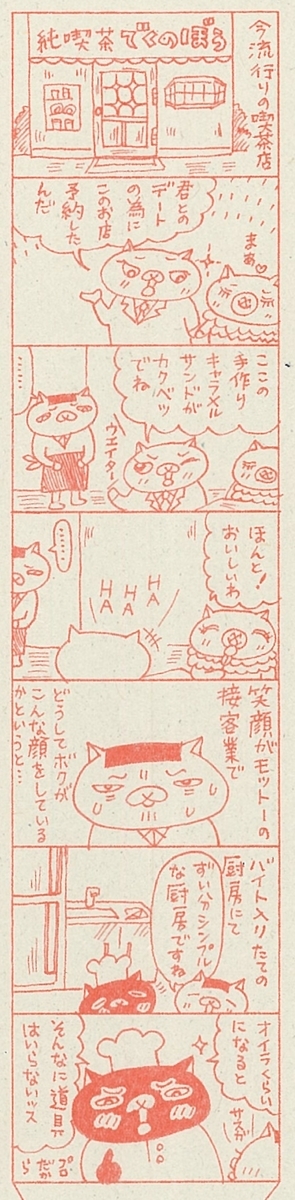 今流行りの喫茶店
純喫茶でくのぼう
まぁ♡
君との
デート
の為に
このお店
予約した
んだ
ここの
手作り
キャラメル
サンドが
カクベツ
でね
ウエイター
………
ほんと!
おいしいわ
HA
HA
HA
……
笑顔がモットーの
接客業で
どうしてボクが
こんな顔をしている
かというと…
バイト入りたての
厨房にて
ずい分シンプル
な厨房ですね
オイラくらい
になると
サスガ
そんなに道具
はいらないッス
プロ
だか
ら